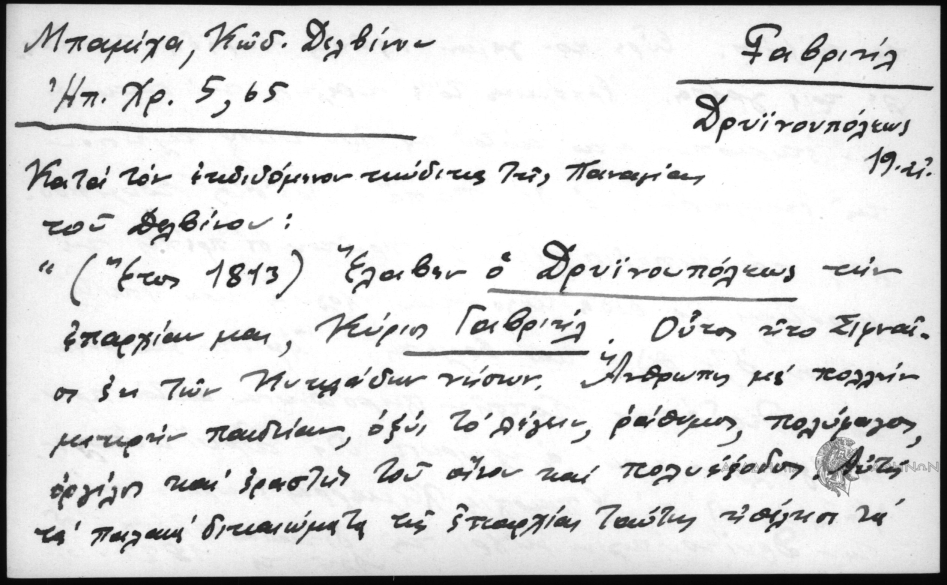 Μπαμίχα, Κώδ. Δελβίνου
Ἠπ. Χρ. 5, 65
Γαβριήλ
Δρυϊνουπόλεως
19. αἰ.
Κατά τόν ἐκδιδόμενον κώδικα τῆς Παναγίας
τοῦ Δελβίνου:
" (Ἔτος 1813) Ἔλαβεν ὁ Δρυϊνουπόλεως τήν
ἐπαρχίαν μας, Κύριος Γαβριήλ. Οὗτος ἦτο Σιφναῖ-
ος ἐκ τῶν Κυκλάδων νήσων. Ἄνθρωπος μέ πολλήν
μικρήν παιδείαν, ὀξύς τό λέγειν, ῥάθυμος, πολύμαχος,
ὀργίλος καί ἐραστής τοῦ οἴνου καί πολυέξοδος. Αὐτός
τά παλαιά δικαιώματα τῆς ἐπαρχίας ταύτης ἠθέλησε νά